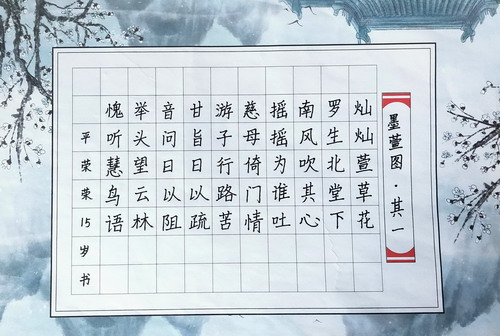 墨萱图·其一
灿灿萱草花
罗生北堂下
南风吹其心
摇摇为谁吐
慈母倚门情
游子行路苦
甘旨日以疏
音问日以阻
举头望云林
愧听慧鸟语
平荣荣15岁书